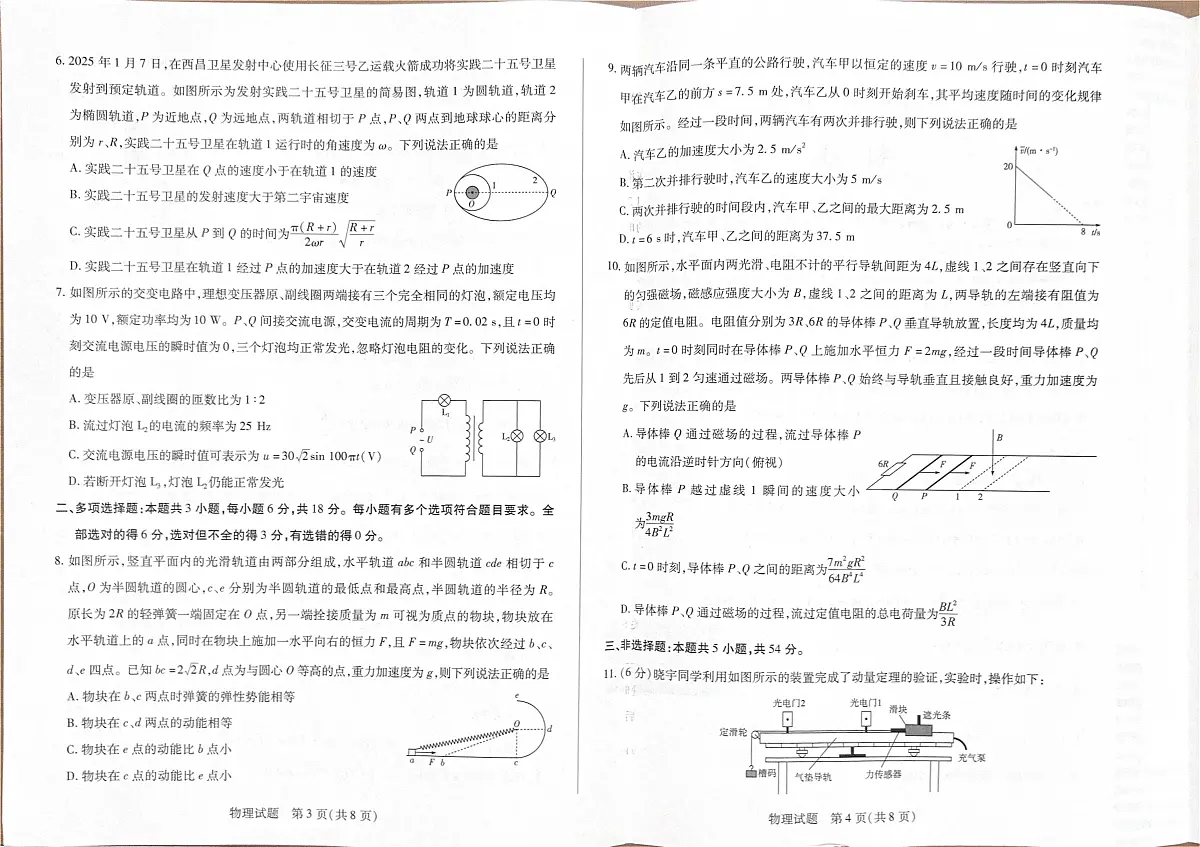 6. 2025 年 1 月 7 日,在西昌卫星发射中心使用长征三号乙运载火箭成功将实践二十五号卫星
发射到预定轨道。如图所示为发射实践二十五号卫星的简易图,轨道 1 为圆轨道,轨道 2
为椭圆轨道,P 为近地点,Q 为远地点,两轨道相切于 P 点,P、Q 两点到地球球心的距离分
别为 r、R,实践二十五号卫星在轨道 1 运行时的角速度为 ω。下列说法正确的是
A. 实践二十五号卫星在 Q 点的速度小于在轨道 1 的速度
B. 实践二十五号卫星的发射速度大于第二宇宙速度
C. 实践二十五号卫星从 P 到 Q 的时间为 π(R+r)/2ωr √(R+r)/r
D. 实践二十五号卫星在轨道 1 经过 P 点的加速度大于在轨道 2 经过 P 点的加速度
P O 1 2 Q
7. 如图所示的交变电路中,理想变压器原、副线圈两端接有三个完全相同的灯泡,额定电压均
为 10 V,额定功率均为 10 W。P、Q 间接交流电源,交变电流的周期为 T=0.02 s,且 t=0 时
刻交流电源电压的瞬时值为 0,三个灯泡均正常发光,忽略灯泡电阻的变化。下列说法正确
的是
A. 变压器原、副线圈的匝数比为 1∶2
B. 流过灯泡 L₂的电流的频率为 25 Hz
C. 交流电源电压的瞬时值可表示为 u=30√2sin 100πt(V)
D. 若断开灯泡 L₃,灯泡 L₂仍能正常发光
L₁ P ~U Q L₂ L₃
二、多项选择题:本题共 3 小题,每小题 6 分,共 18 分。每小题有多个选项符合题目要求。全
部选对的得 6 分,选对但不全的得 3 分,有选错的得 0 分。
8. 如图所示,竖直平面内的光滑轨道由两部分组成,水平轨道 abc 和半圆轨道 cde 相切于 c
点,O 为半圆轨道的圆心,c、e 分别为半圆轨道的最低点和最高点,半圆轨道的半径为 R。
原长为 2R 的轻弹簧一端固定在 O 点,另一端拴接质量为 m 可视为质点的物块,物块放在
水平轨道上的 a 点,同时在物块上施加一水平向右的恒力 F,且 F=mg,物块依次经过 b、c、
d、e 四点。已知 bc=2√2R,d 点为与圆心 O 等高的点,重力加速度为 g,则下列说法正确的是
A. 物块在 b、c 两点时弹簧的弹性势能相等
B. 物块在 c、d 两点的动能相等
C. 物块在 e 点的动能比 b 点小
D. 物块在 c 点的动能比 e 点小
e O d a F b c
物理试题 第 3 页(共 8 页)
9. 两辆汽车沿同一条平直的公路行驶,汽车甲以恒定的速度 v=10 m/s 行驶,t=0 时刻汽车
甲在汽车乙的前方 s=7.5 m 处,汽车乙从 0 时刻开始刹车,其平均速度随时间的变化规律
如图所示。经过一段时间,两辆汽车有两次并排行驶,则下列说法正确的是
A. 汽车乙的加速度大小为 2.5 m/s²
B. 第二次并排行驶时,汽车乙的速度大小为 5 m/s
C. 两次并排行驶的时间段内,汽车甲、乙之间的最大距离为 2.5 m
D. t=6 s 时,汽车甲、乙之间的距离为 37.5 m
v̄/(m·s⁻¹) 20 0 8 t/s
10. 如图所示,水平面内两光滑、电阻不计的平行导轨间距为 4L,虚线 1、2 之间存在竖直向下
的匀强磁场,磁感应强度大小为 B,虚线 1、2 之间的距离为 L,两导轨的左端接有阻值为
6R 的定值电阻。电阻值分别为 3R、6R 的导体棒 P、Q 垂直导轨放置,长度均为 4L,质量均
为 m。t=0 时刻同时在导体棒 P、Q 上施加水平恒力 F=2mg,经过一段时间导体棒 P、Q
先后从 1 到 2 匀速通过磁场。两导体棒 P、Q 始终与导轨垂直且接触良好,重力加速度为
g。下列说法正确的是
A. 导体棒 Q 通过磁场的过程,流过导体棒 P
的电流沿逆时针方向(俯视)
B. 导体棒 P 越过虚线 1 瞬间的速度大小
为 3mgR/4B²L²
C. t=0 时刻,导体棒 P、Q 之间的距离为 7m²gR²/64B⁴L⁴
D. 导体棒 P、Q 通过磁场的过程,流过定值电阻的总电荷量为 BL²/3R
6R F F B Q P 1 2
三、非选择题:本题共 5 小题,共 54 分。
11. (6 分)晓宇同学利用如图所示的装置完成了动量定理的验证,实验时,操作如下:
光电门2 光电门1 滑块 遮光条
定滑轮
充气泵
槽码 气垫导轨 力传感器
物理试题 第 4 页(共 8 页)